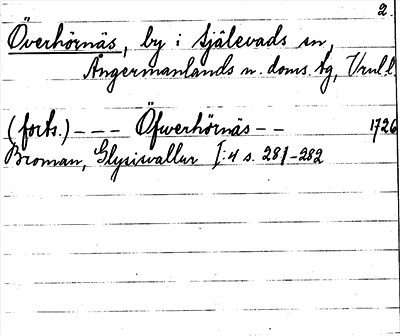 2.
Överhörnäs, by i Själevads sn,
Ångermanlands n. doms. tg, Vrml l.
(forts.) - - - Öfwerhörnäs - - 1726
Broman, Glysisvallur I:4 s. 281-282